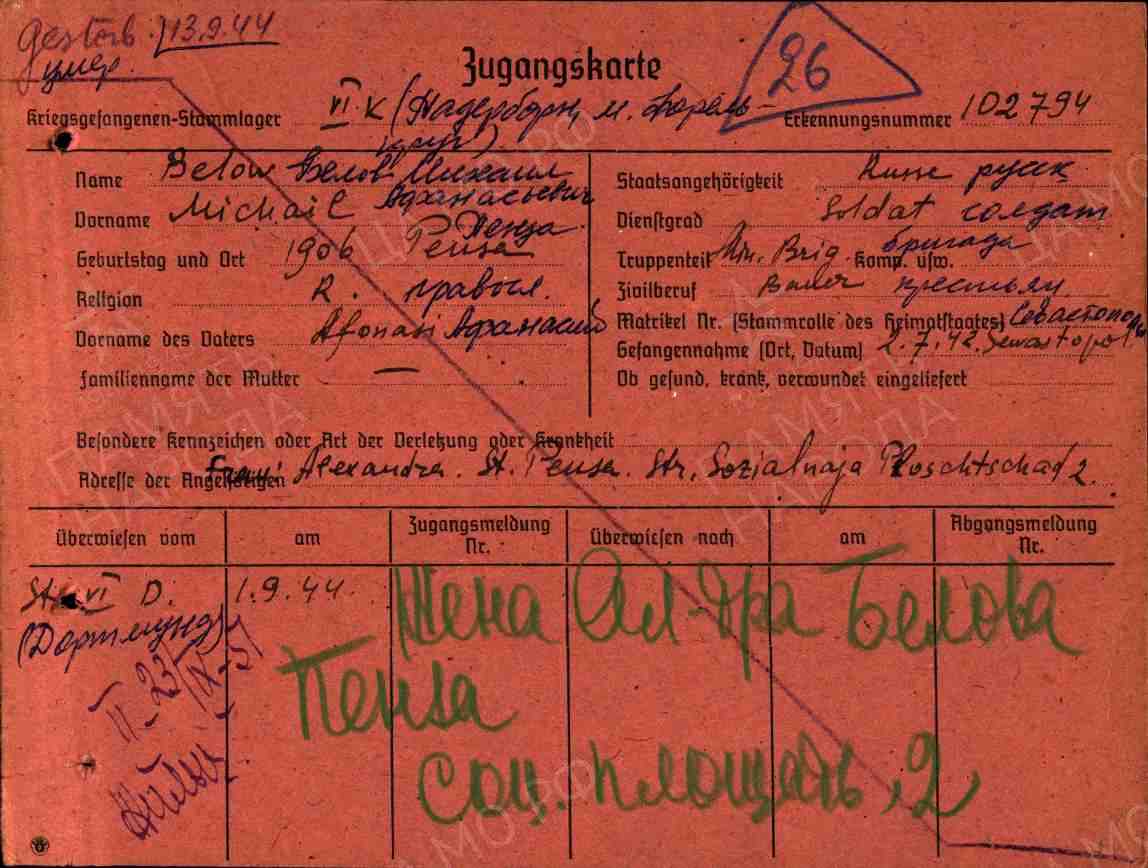 Gestorb. 13.9.44
умер.
Zugangskarte
26
Kriegsgefangenen-Stammlager VI K (Падерборн, м. Форель-
круг).
Erkennungsnummer 102794
Name Below Белов Михаил
Афанасьевич
Vorname Michail
Пенза
Geburtstag und Ort 1906 Pensa
Religion R. правосл.
Vorname des Vaters Afonasi Афанасий
Familienname der Mutter —
Staatsangehörigkeit Russe русск
Dienstgrad Soldat солдат
Truppenteil Brig. бригада Komp. usw.
Zivilberuf Bauer крестьян
Matrikel Nr. (Stammrolle des Heimatstaates) Севастополь
Gefangennahme (Ort, Datum) 2.7.42. Sewastopol
Ob gesund, krank, verwundet eingeliefert
Besondere Kennzeichen oder Art der Verletzung oder Krankheit
Adresse der Angehörigen Frau: Alexandra. St. Pensa. Str. Sozialnaja Ploschtschad 2.
Überwiesen vom am Zugangsmeldung Nr. Überwiesen nach am Abgangsmeldung Nr.
St. VI D. 1.9.44.
(Дортмунд)
Жена Ал-дра Белова
Пенза
Соц. площадь, 2
ПАМЯТЬ НАРОДА
ЦАМО РФ